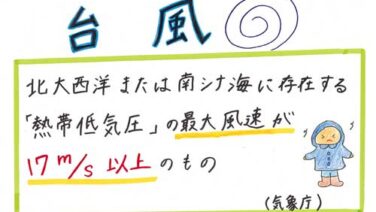 台風
北大西洋または南シナ海に存在する
「熱帯低気圧」の最大風速が
17m/s以上のもの
(気象庁)